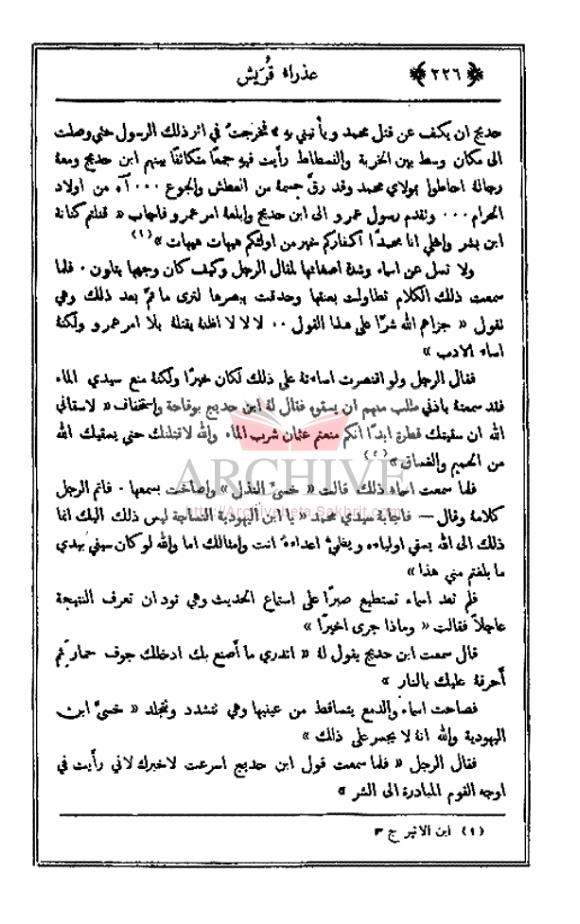 ﴿ ٢٢٦ ﴾
عذراء قُرَيش
حديج ان يكف عن قتل محمد ويأتيني به » فخرجتُ في اثر ذلك الرسول حتى وصلت
الى مكان وسط بين الخربة والفسطاط رأيت فيهِ جمعًا متكاثفًا بينهم ابن حديج ومعهُ
رجالهُ احاطوا بمولاي محمد وقد رقَّ جسمهُ من العطش والجوع ٠٠٠ آه من اولاد
الحرام ٠٠٠ وتقدم رسول عمرو الى ابن حديج وابلغهُ امر عمرو فاجاب « قتلتم كنانة
ابن بشر واخلي انا محمدًا اكفاركم خير من اولئكم هيهات هيهات »(١)
ولا تسل عن اسماء وشدة اصغائها لمقال الرجل وكيف كان وجهها يتلون ٠ فلما
سمعت ذلك الكلام تطاولت بعنقها وحدقت ببصرها لترى ما تمَّ بعد ذلك وهي
تقول « جزاهم الله شرًّا على هذا القول ٠٠ لا لا لا اظنهُ يقتلهُ بلا امر عمرو ولكنهُ
اساء الادب »
فقال الرجل ولو اقتصرت اساءتهُ على ذلك لكان خيرًا ولكنهُ منع سيدي الماء
فقد سمعتهُ باذني طلب منهم ان يسقوه فقال لهُ ابن حديج بوقاحة واستخفاف « لاسقاني
الله ان سقيتك قطرة ابدًا انكم منعتم عثمان شرب الماء والله لاقتلنك حتى يسقيك الله
من الحميم والغساق »(٢)
ARCHIVE
http://Archivebeta.Sakhrit.com
فلما سمعت اسماء ذلك قالت « خسئَ النذل » واصاخت بسمعها ٠ فاتم الرجل
كلامهُ وقال — فاجابهُ سيدي محمد « يا ابن اليهودية النساجة ليس ذلك اليك انما
ذلك الى الله يسقي اولياءه ويظمئُ اعداءهُ انت وامثالك اما والله لو كان سيفي بيدي
ما بلغتم مني هذا »
فلم تعد اسماء تستطيع صبرًا على استماع الحديث وهي تود ان تعرف النتيجة
عاجلاً فقالت « وماذا جرى اخيرًا »
قال سمعت ابن حديج يقول لهُ « اتدري ما أصنع بك ادخلك جوف حمار ثم
أحرقهُ عليك بالنار »
فصاحت اسماء والدمع يتساقط من عينيها وهي تتشدد وتتجلد « خسئَ ابن
اليهودية والله انهُ لا يجسر على ذلك »
فقال الرجل « فلما سمعت قول ابن حديج اسرعت لاخبرك لاني رأيت في
اوجه القوم المبادرة الى الشر »
(١) ابن الاثير ج ٣